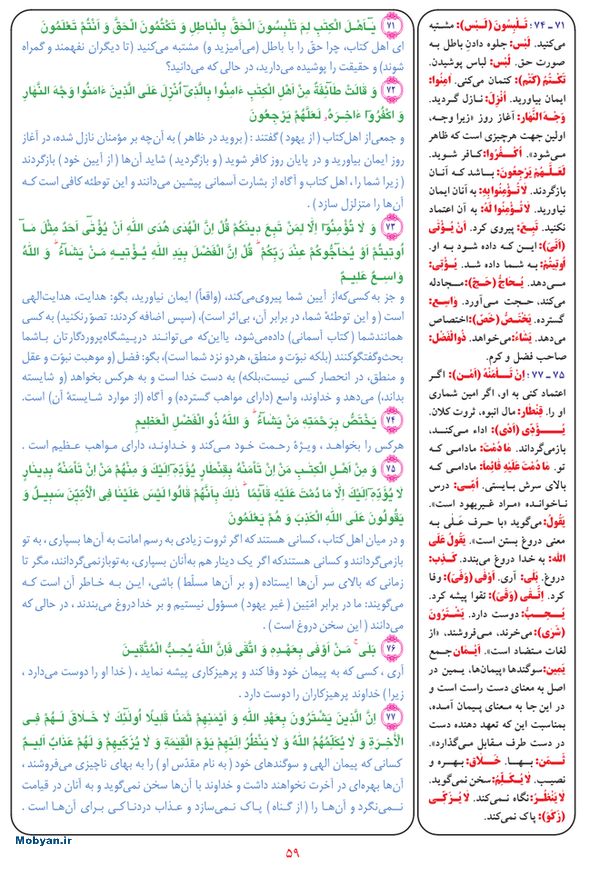 ۷۱ یَـٰٓأَهْلَ الْکِتَٰبِ لِمَ تَلْبِسُونَ الْحَقَّ بِالْبَاطِلِ وَ تَکْتُمُونَ الْحَقَّ وَ أَنْتُمْ تَعْلَمُونَ
ای اهل کتاب، چرا حقّ را با باطل (می‌آمیزید و) مشتبه می‌کنید (تا دیگران نفهمند و گمراه
شوند) و حقیقت را پوشیده می‌دارید، در حالی که می‌دانید؟
۷۲ وَ قَالَت طَّآئِفَةٌ مِنْ أَهْلِ الْکِتَٰبِ ءَامِنُوا بِالَّذِیٓ أُنْزِلَ عَلَی الَّذِینَ ءَامَنُوا وَجْهَ النَّهَارِ
وَ اکْفُرُوٓا ءَاخِرَهُ لَعَلَّهُمْ یَرْجِعُونَ
و جمعی از اهل کتاب ( از یهود ) گفتند : ( بروید در ظاهر ) به آن‌چه بر مؤمنان نازل شده، در آغاز
روز ایمان بیاورید و در پایان روز کافر شوید ( و بازگردید ) شاید آن‌ها ( از آیین خود ) بازگردند
( زیرا شما را ، اهل کتاب و آگاه از بشارت آسمانی پیشین می‌دانند و این توطئه کافی است که
آن‌ها را متزلزل سازد ) .
۷۳ وَ لَا تُؤْمِنُوٓا إِلَّا لِمَنْ تَبِعَ دِینَکُمْ قُلْ إِنَّ الْهُدَی هُدَی اللَّهِ أَنْ یُؤْتَیٰٓ أَحَدٌ مِثْلَ مَـآ
أُوتِیتُمْ أَوْ یُحَآجُّوکُمْ عِنْدَ رَبِّکُمْ ۗ قُلْ إِنَّ الْفَضْلَ بِیَدِ اللَّهِ یُـؤْتِیـهِ مَـنْ یَشَـآءُ ۗ وَ اللَّهُ
وَاسِـعٌ عَلِیـمٌ
و جز به کسی‌که از آیین شما پیروی می‌کند، (واقعاً) ایمان نیاورید، بگو: هدایت، هدایت‌الهی
است ( و این توطئهٔ شما، در برابر آن، بی‌اثر است)، (سپس اضافه کردند: تصوّر نکنید) به کسی
همانند شما ( کتاب آسمانی) داده می‌شود، یا این‌که می‌توانند در پیشگاه پروردگارتان با شما
بحث و گفتگو کنند (بلکه نبوّت و منطق، هر دو نزد شما است)، بگو: فضل (و موهبت نبوّت و عقل
و منطق، در انحصار کسی نیست، بلکه) به دست خدا است و به هرکس بخواهد (و شایسته
بداند)، می‌دهد و خداوند، واسع (دارای مواهب گسترده) و آگاه (از موارد شایستهٔ آن) است.
۷۴ یَخْتَصُّ بِرَحْمَتِهِ مَنْ یَشَآءُ ۗ وَ اللَّهُ ذُو الْفَضْلِ الْعَظِیمِ
هرکس را بخواهد ، ویژهٔ رحمت خود می‌کند و خداوند، دارای مواهب عظیم است .
۷۵ وَ مِنْ أَهْلِ الْکِتَٰبِ مَنْ إِنْ تَأْمَنْهُ بِقِنْطَارٍ یُؤَدِّهِٓ إِلَیْکَ وَ مِنْهُمْ مَنْ إِنْ تَأْمَنْهُ بِدِینَارٍ
لَا یُؤَدِّهِٓ إِلَیْکَ إِلَّا مَا دُمْتَ عَلَیْهِ قَآئِمًا ۗ ذَٰلِکَ بِأَنَّهُمْ قَالُوا لَیْسَ عَلَیْنَا فِی الْأُمِّیِّنَ سَبِیـلٌ وَ
یَقُولُونَ عَلَی اللَّهِ الْکَذِبَ وَ هُمْ یَعْلَمُونَ
و در میان اهل کتاب ، کسانی هستند که اگر ثروت زیادی به رسم امانت به آن‌ها بسپاری ، به تو
باز می‌گردانند و کسانی هستند که اگر یک دینار هم به آنان بسپاری، به تو باز نمی‌گردانند، مگر تا
زمانی که بالای سر آن‌ها ایستاده ( و بر آن‌ها مسلّط ) باشی، این به خاطر آن است که
می‌گویند: ما در برابر امّیّین ( غیر یهود ) مسؤول نیستیم و بر خدا دروغ می‌بندند ، در حالی که
می‌دانند ( این سخن دروغ است ) .
۷۶ بَلَیٰ ۚ مَـنْ أَوْفَی بِعَهْدِهِ وَ اتَّقَی فَإِنَّ اللَّهَ یُحِبُّ الْمُتَّقِینَ
آری ، کسی که به پیمان خود وفا کند و پرهیزکاری پیشه نماید ، ( خدا او را دوست می‌دارد ،
زیرا ) خداوند پرهیزکاران را دوست دارد .
۷۷ إِنَّ الَّذِینَ یَشْتَرُونَ بِعَهْدِ اللَّهِ وَ أَیْمَٰنِهِمْ ثَمَنًا قَلِیلًا أُولَٰٓئِکَ لَا خَلَاقَ لَهُمْ فِی
الْأَخِرَةِ وَ لَا یُکَلِّمُهُمُ اللَّهُ وَ لَا یَنْظُرُ إِلَیْهِمْ یَوْمَ الْقِیَٰمَةِ وَ لَا یُزَکِّیهِمْ وَ لَهُمْ عَذَابٌ أَلِیمٌ
کسانی که پیمان الهی و سوگندهای خود ( به نام مقدّس او ) را به بهای ناچیزی می‌فروشند ،
آن‌ها بهره‌ای در آخرت نخواهند داشت و خداوند با آن‌ها سخن نمی‌گوید و به آنان در قیامت
نمی‌نگرد و آن‌ها را ( از گناه ) پاک نمی‌سازد و عذاب دردناکی برای آن‌ها است .
۷۱ ـ ۷۴: تَلْبِسُونَ (لَـبْس): مشتبه
می‌کنید. لَبْس: جلوه دادن باطل به
صورت حق. لُبْس: لباس پوشیدن.
تَکْتُمُ (کَتْم): کتمان می‌کنی. آمِنُوا:
ایمان بیاورید. أُنْزِلَ: نازل گردید.
وَجْهَ النَّهَارِ: آغاز روز «زیرا وجه،
اولین جهت هرچیزی است که ظاهر
می‌شود». أُکْفُرُوا: کافر شوید.
لَعَلَّهُمْ یَرْجِعُونَ: باشد که آنان
بازگردند. لَا تُؤْمِنُوا بِهِ: به آن ایمان
نیاورید. لَا تُؤْمِنُوا لَهُ: به آن اعتماد
نکنید. تَبِعَ: پیروی کرد. أَنْ یُؤْتَی
(أَتَیَ): این که داده شود به او.
أُوتِیتُمْ: به شما داده شد. یُؤْتِی:
می‌دهد. یُحَاجُّ (حَجّ): مجادله
می‌کند، حجت می‌آورد. وَاسِع:
گسترده. یَخْتَصُّ (خَصّ): اختصاص
می‌دهد. یَشَاءُ: می‌خواهد. ذُوالْفَضْل:
صاحب فضل و کرم.
۷۵ ـ ۷۷: إِنْ تَـأْمَنْهُ (أَمَنَ): اگـر
اعتماد کنی به او، اگر امین شماری
او را. قِنْطَار: مال انبوه، ثروت کلان.
یُـؤَدِّی (أَدَیَ): اداء می‌کنـد،
بازمی‌گرداند. مَا دُمْتَ: مادامی که
تو. مَا دُمْتَ عَلَیْهِ قَائِمًا: مادامی که
بالای سرش بایستی. أُمِّی: درس
ناخوانده «مراد غیریهود است».
یَقُولُ: می‌گوید «با حرف عَلَی به
معنی دروغ بستن است». یَقُولُ عَلَی
اللَّهِ: به خدا دروغ می‌بندد. کَـذِب:
دروغ. بَلَی: آری. أَوْفَی (وَفَیَ): وفا
کرد. اتَّقَی (وَقَیَ): تقوا پیشه کرد.
یُـحِـبُّ: دوست دارد. یَشْتَرُونَ
(شَرَی): می‌خرند، می‌فروشند، «از
لغات متضاد است». أَیْمَان جمع
یَمِین: سوگندها «پیمان‌ها، یمین در
اصل به معنای دست راست است و
در این جا به معنای پیمان آمده،
بمناسبت این که تعهد دهنده دست
در دست طرف مقابل می‌گذارد».
ثَمَـن: بهـا. خَلَاق: بهـره و
نصیب. لَا یُکَلِّمُ: سخن نمی‌گوید.
لَا یَنْظُرُ: نگاه نمی‌کند. لَا یُزَکِّی
(زَکَوَ): پاک نمی‌کند.
Mobyan.ir
۵۹